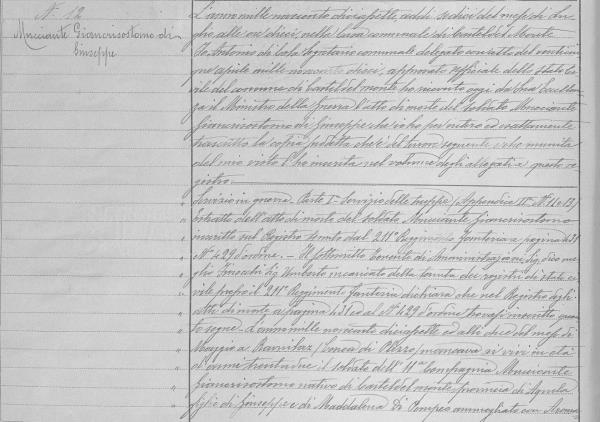 N. 12
Mucciante Giancrisostomo di
Giuseppe
L'anno mille novecento diciassette, addì sedici del mese di Lu
glio alle ore dieci, nella Casa comunale di Castel del Monte
Io Antonio segretario comunale delegato con atto del
aprile mille novecento dieci, approvato Ufficiale dello Stato Ci
vile del comune di Castel del Monte ho ricevuto oggi da Sua Eccellen
za il Ministro della Guerra l'atto di morte del soldato Mucciante
Giancrisostomo di Giuseppe che io ho per intero ed esattamente
trascritto. La copia predetta che è del tenore seguente venne munita
del mio visto l'ho inserita nel volume degli allegati a questo re
gistro.
Servizio in guerra. Parte I. Servizio delle truppe (Appendice N. 11 e 13)
Estratto dell'atto di morte del soldato Mucciante Giancrisostomo
inscritto sul Registro tenuto dal 211° Reggimento Fanteria a pagina 431
N° 429 d'ordine. - Il sottoscritto tenente di Amministrazione Sig.
Sig. Umberto incaricato della tenuta dei registri di stato ci
vile presso il 211° Reggimento fanteria dichiara che nel Registro degli
atti di morte a pagina 431 ed al N° 429 d'ordine trovasi inscritto quan
to segue. L'anno mille novecento diciassette ed alli dieci del mese di
Maggio a mancava ai vivi in età
d'anni trentadue il soldato dell' 11ª Compagnia Mucciante
Giancrisostomo nativo di Castel del Monte provincia di Aquila
figlio di Giuseppe e di Maddalena Di Pompeo ammogliato con